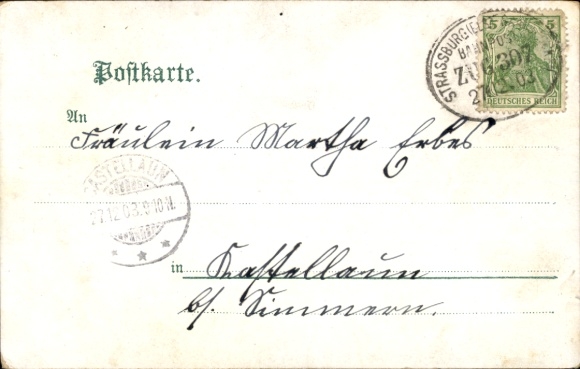 5 5
DEUTSCHES REICH
STRASSBURG (ELS
BAHNPOST
ZUG 307
27.12.03
Postkarte.
An
Fräulein Martha Erbes
CASTELLAUN
27.12.03.9-10N.
in Kastellaun
b/. Simmern.